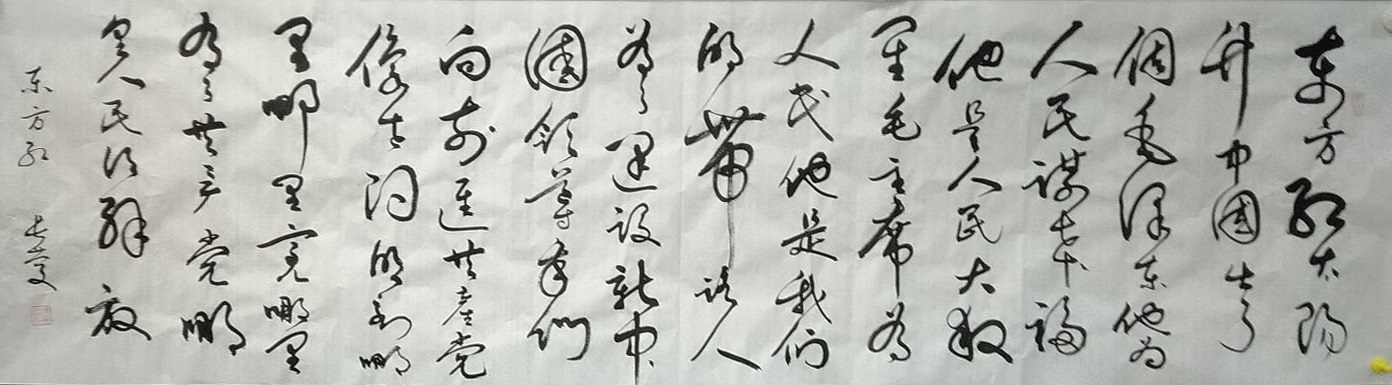 东方红太阳
升中国出了
個毛泽东他为
人民谋幸福
他是人民大救
星毛主席为
人民他是我们
的带路人
为了建设新中
國领导我们
向前进共产党
像太阳照到哪
里哪里亮哪里
有了共产党哪
里人民得解放
东方红